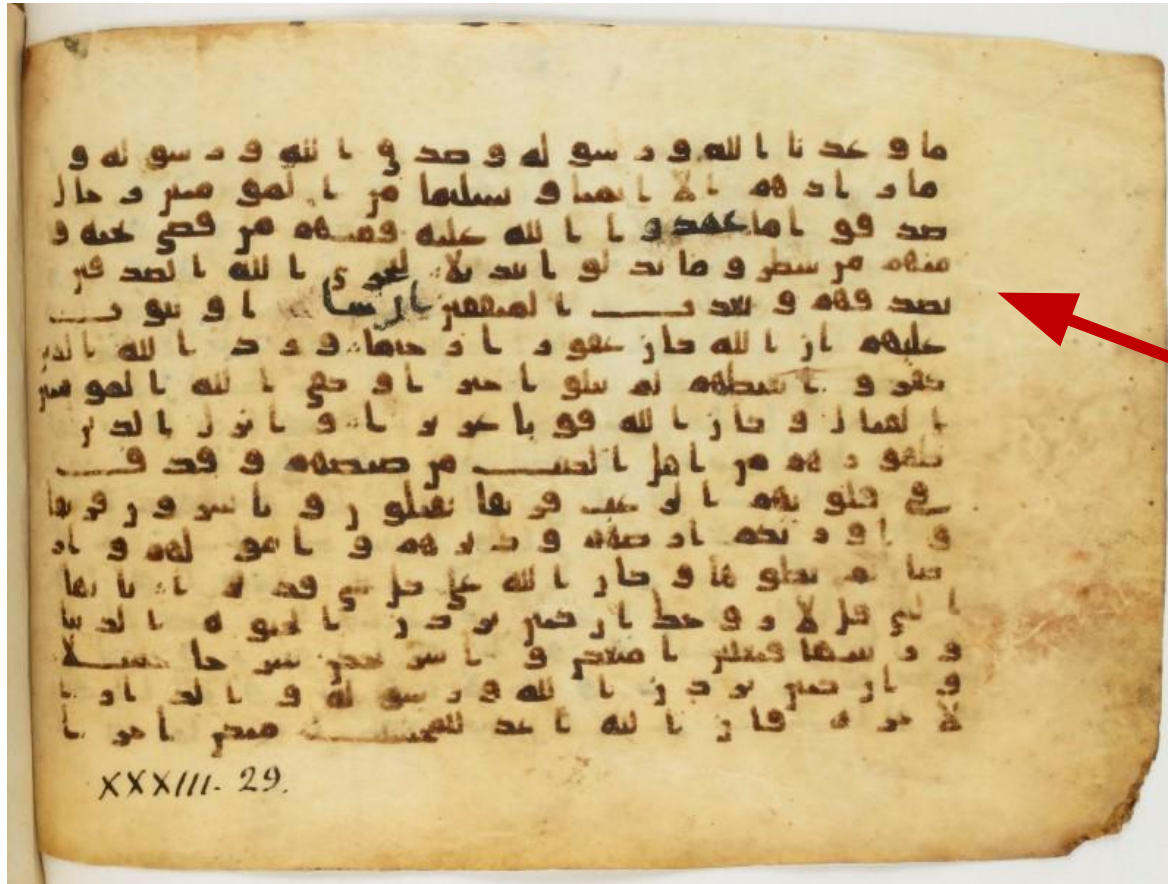 ما وعدنا الله ورسوله وصدق الله ورسوله و
ما زادهم الا ايمنا وتسليما من المومنين رجال
صدقوا ما عهدوا الله عليه فمنهم من قضى نحبه و
منهم من ينتظر وما بدلوا تبديلا ليجزي الله الصدقين
بصدقهم ويعذب المنفقين ان شا او يتوب
عليهم ان الله كان غفورا رحيما ورد الله الذين
كفروا بغيظهم لم ينلوا خيرا وكفى الله المومنين
القتال وكان الله قويا عزيزا وانزل الذين
ظهروهم من اهل الكتب من صيصهم وقذف
في قلوبهم الرعب فريقا تقتلون وتاسرون فريقا
واورثكم ارضهم وديرهم وامولهم وار
ضا لم تطوها وكان الله على كل شي قديرا يايها
النبي قل لازوجك ان كنتن تردن الحيوة الدنيا
وزينتها فتعلين امتعكن واسرحكن سرحا جميلا
وان كنتن تردن الله ورسوله والدار ا
لاخرة فان الله اعد للمحسنت منكن اجرا
XXXIII. 29.